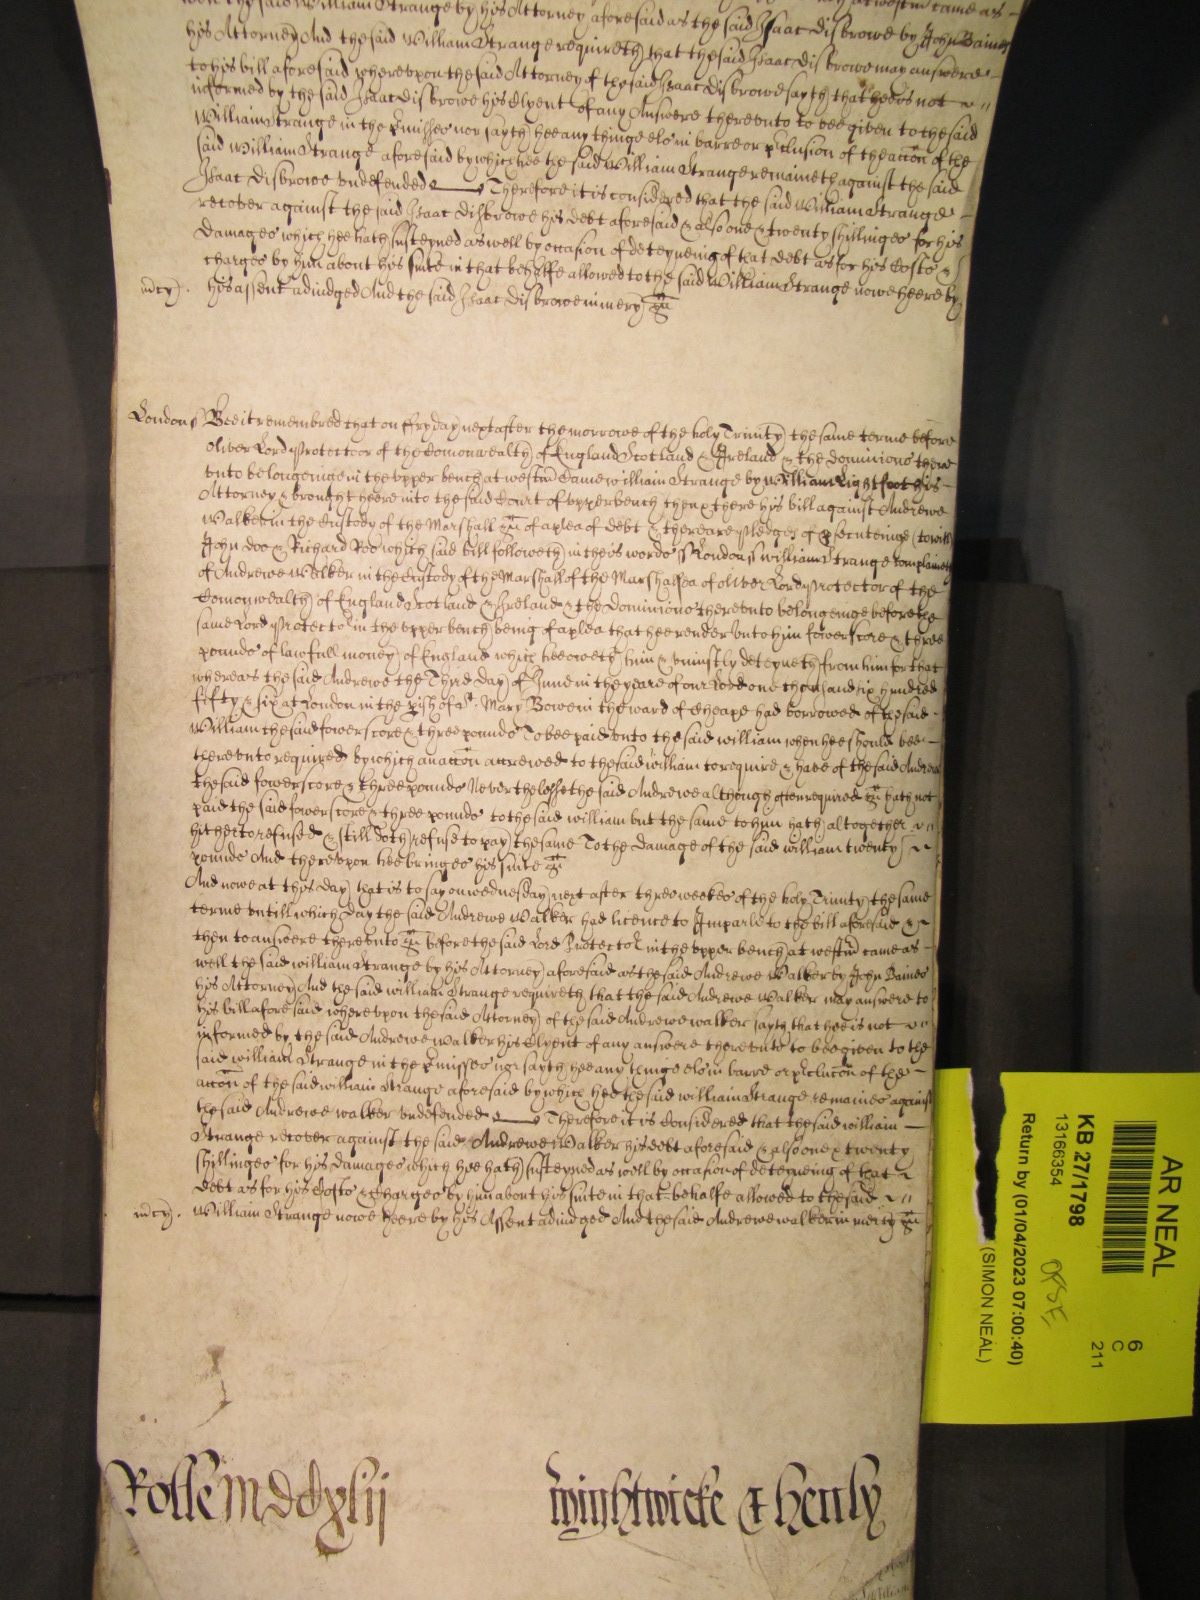 well the said William Strange by his Attorney aforesaid as the said Isaac Disbrowe by John Baines
his Attorney And the said William Strange requireth that the said Isaac Disbrowe may answere
to his bill aforesaid whereupon the said Attorney of the said Isaac Disbrowe sayth that hee is not
informed by the said Isaac Disbrowe his Clyent of any Answere thereunto to bee given to the said
William Strange in the pmisses nor sayth hee any thinge els in barre or pclusion of the accon of the
said William Strange aforesaid by which hee the said William Strange remaineth against the said
Isaac Disbrowe undefended Therefore it is considered that the said William Strange
recover against the said Isaac Disbrowe his debt aforesaid & also one & twenty shillinges for his
Damages which hee hath susteyned as well by occasion of deteyneing of that debt as for his Costs &
charges by him about his suite in that behalfe allowed to the said William Strange nowe heere by
mcy. his assent adiudged And the said Isaac Disbrowe in mercy &c
London ss Bee it remembred that on ffryday next after the morrowe of the holy Trinity the same terme before
Oliver Lord Protector of the Comonwealth of England Scotland & Ireland & the dominions there
unto belongeinge in the upper bench at westm Came william Strange by William Lightfoot his
Attorney & brought heere into the said Court of upper bench then & there his bill against Andrewe
Walker in the Custody of the Marshall &c of a plea of debt & there are pledges of psecuteinge (to witt)
John Doo & Richard Roo which said bill followeth in theis words ss London ss william Strange complaineth
of Andrewe Walker in the Custody of the Marshall of the Marshalsea of Oliver Lord Protector of the
Comonwealth of England Scotland & Ireland & the Dominions thereunto belongeinge before the
same Lord Protector in the upper bench being of a plea that hee render unto him fower score & three
pounds of lawfull money of England which hee oweth him & uniustly deteyneth from him for that
whereas the said Andrewe the Third day of June in the yeare of our Lord one thousand six hundred
fifty & six at London in the pish of St. Mary Bowe in the ward of Cheape had borrowed of the said
William the said fower score & three pounds To bee paid unto the said william when hee should bee
thereunto required by which an accon accrewed to the said william to require & have of the said Andrew
the said fower score & three pounds Neverthelesse the said Andrewe although often required &c hath not
paid the said fower score & three pounds to the said william but the same to him hath altogether
hitherto refused & still doth refuse to pay the same To the damage of the said william twenty
pounds And thereupon hee bringes his suite &c
And nowe at this day that is to say on wednesday next after three weekes of the holy Trinity the same
terme untill which day the said Andrewe Walker had licence to Imparle to the bill aforesaid &
then to answere thereunto &c before the said Lord Protector in the upper bench at westm came as
well the said william Strange by his Attorney aforesaid as the said Andrewe Walker by John Baines
his Attorney And the said william Strange requireth that the said Andrewe Walker may answere to
his bill aforesaid whereupon the said Attorney of the said Andrewe walker sayth that hee is not
informed by the said Andrewe Walker his Clyent of any answere thereunto to bee given to the
said william Strange in the pmisses nor sayth hee any thinge els in barre or pclucon of the
accon of the said william Strange aforesaid by which hee the said william Strange remaines against
the said Andrewe walker undefended Therefore it is Considered that the said william
Strange recover against the said Andrewe Walker his debt aforesaid & also one & twenty
shillinges for his damages which hee hath susteyned as well by occasion of deteyneing of that
debt as for his Costs & Charges by him about his suite in that behalfe allowed to the said
mcy. William Strange nowe heere by his Assent adiudged And the said Andrewe walker in mercy &c
Rolle MDdxlij
Wightwicke & Henly
AR NEAL
6
C
211
KB 27/1798
13166354
Return by (01/04/2023 07:00:40)
(SIMON NEAL)